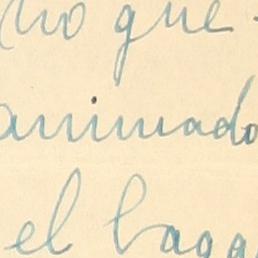 que
animado
el baga